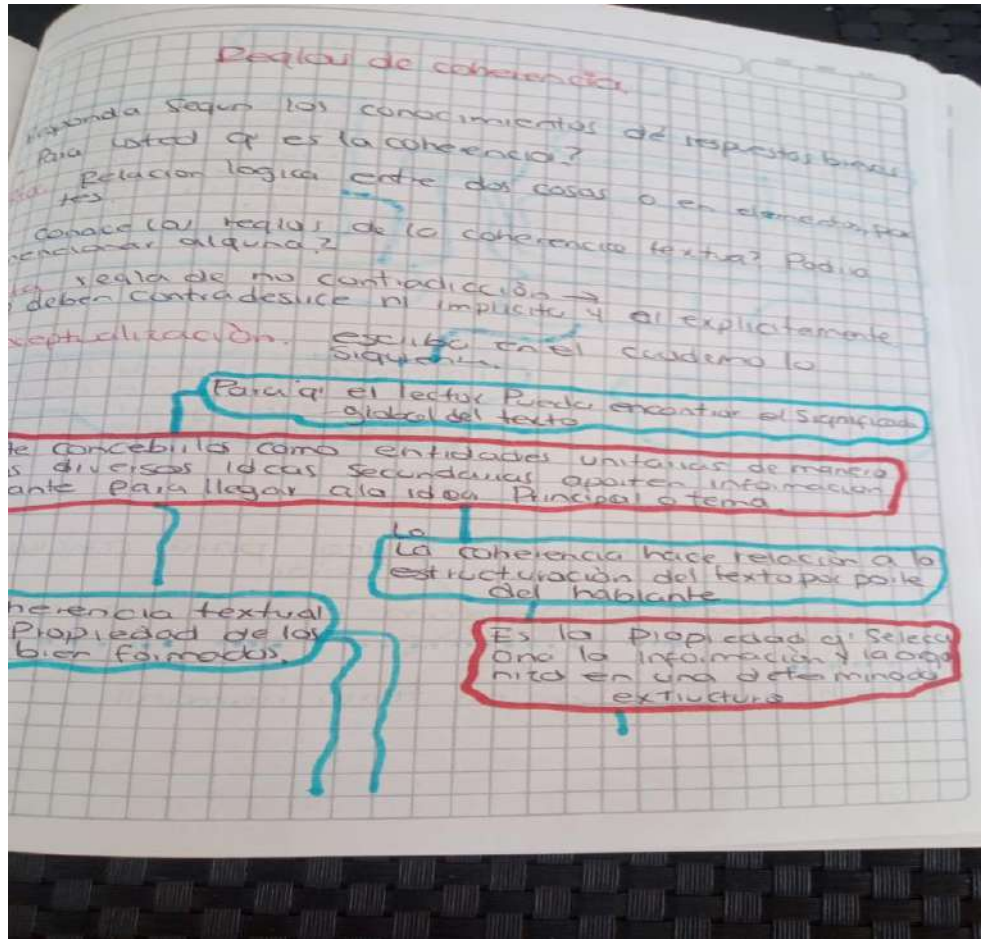 Reglas de coherencia
según los conocimientos de respuestas breves
Para usted q' es la coherencia?
Relacion logica entre dos cosas o en elementos, par
tes.
conoce las reglas de la coherencia textual? Podria
mencionar alguna?
regla de no contradicción →
deben contradesirce ni implicita y ni explicitamente
ceptualización. escriba en el cuaderno lo
siguien...
Para q' el lector Pueda encontrar el significado
global del texto
te concebirlos como entidades unitarias de manera
s diversas ideas secundarias aporten información
ante para llegar a la idea Principal o tema
La
La coherencia hace relación a la
estructuración del texto por parte
del hablante
herencia textual
Propiedad de los
bien formados.
Es la propiedad q' selecci
ona la información y la orga
niza en una determinada
extructura